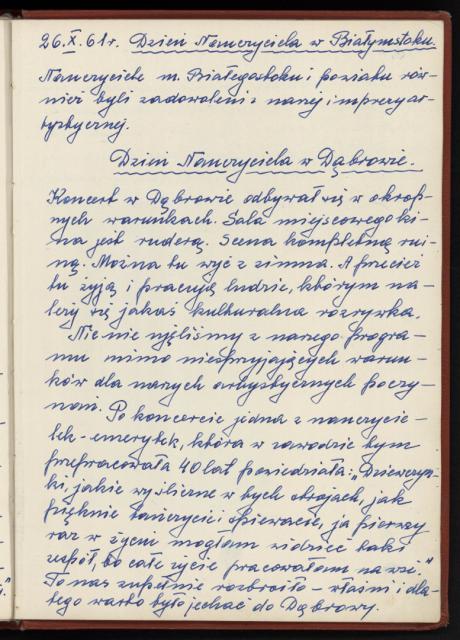 26.X.61r. Dzień Nauczyciela w Białymstoku.
Nauczyciele m. Białegostoku i powiatu rów-
nież byli zadowoleni z naszej imprezy ar-
tystycznej.
Dzień Nauczyciela w Dąbrowie.
Koncert w Dąbrowie odbywał się w okrop-
nych warunkach. Sala miejscowego ki-
na jest ruderą. Scena kompletną rui-
ną. Można tu wyć z zimna. A przecież
tu żyją i pracują ludzie, którym na-
leży się jakaś kulturalna rozrywka.
Nic nie ujęliśmy z naszego progra-
mu mimo niesprzyjających warun-
ków dla naszych artystycznych poczy-
nań. Po koncercie jedna z nauczycie-
lek - emerytek, która w zawodzie tym
przepracowała 40 lat powiedziała: „Dziewczyn-
ki, jakie wyśliczne w tych strojach, jak
pięknie tańczycie i śpiewacie, ja pierwszy
raz w życiu mogłam widzieć taki
zespół, bo całe życie pracowałam na wsi."
To nas zupełnie rozbroiło - właśni i dla-
tego warto było jechać do Dąbrowy.